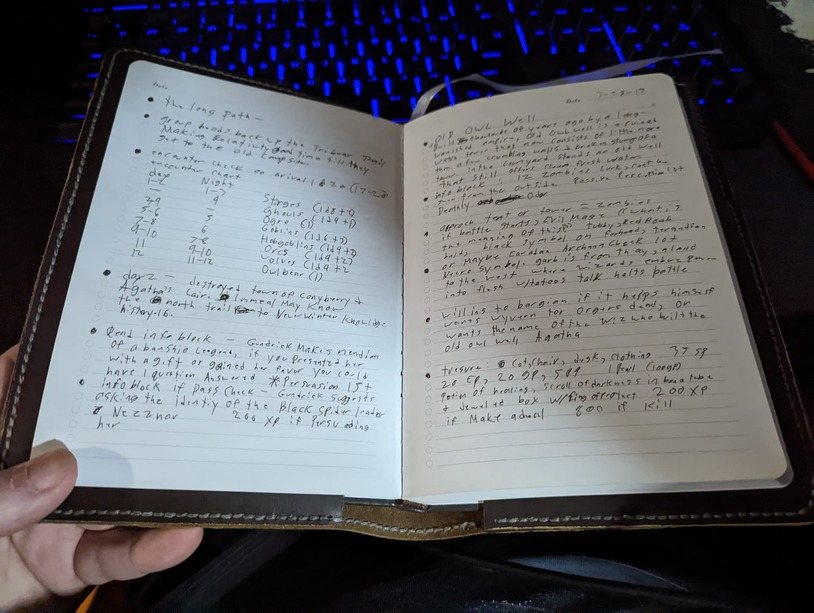 Date
the long path —
group heads back up the Tribor Trail
Making time till they
get to the old Campsite
encounter check on arrival 1d20 (17-20
encounter chart
day Night
1-2 1-3 Stirges (1d8+2)
3-4 4 Ghouls (1d4+1)
5-6 5 Ogre (1)
7-8 6 Goblins (1d6+3)
9-10 7-8 Hobgoblins (1d4+2)
11 9-10 Orcs (1d4+2)
12 11-12 Wolves (1d4+2
Owlbear (1)
day 2 — destroyed town of Conyberry &
Agatha's Lair. Immeal May Know
the north trail to NeverWinter Knowledge
history-16.
Read info block — Gundrick Makes mention
of a banshie Legend, if you presented her
with a gift or gained her favor you could
have 1 question Answered *Persuasion 15+
info block if pass Check — Gundrick suggests
asking the identity of the Black Spider leader
Nezznar 200 XP if Persuading
her
Date 7-28-19
Old Owl Well
Built thousands of years ago by a long-
vanished empire Old Owl well is a
watch tower that now consists of little more
than a few crumbling walls & broken stump of a
tower in the courtyard stands an old well
that still offers clean fresh water
info block — 12 Zombies Lurk, cant be
seen from the outside Passive Perception 15+
Deathly Odor
approch tent or tower = Zombies
if battle starts, Evil Mage ((what is
the meaning of this)) tubby, Red Robe
bald, black symbol on forhead,
or Maybe Arcana Check 10+
Necro symbol, garb is from thay, a land
to the East where wizards
into flesh tatoos talk halts battle
willing to bargian if it helps himself
wants Wyvern tor Orgers dead, or
wants the name of the wiz who built the
old owl well Agatha
tresure: Cot, chair, desk, clothing 35 SP
20 EP, 20 GP, 5 1 Pearl (100gp)
Potion of healing, scroll of darkness in bone tube
& Jeweled box w/ring of Protect 200 XP
if Make a deal 800 if kill